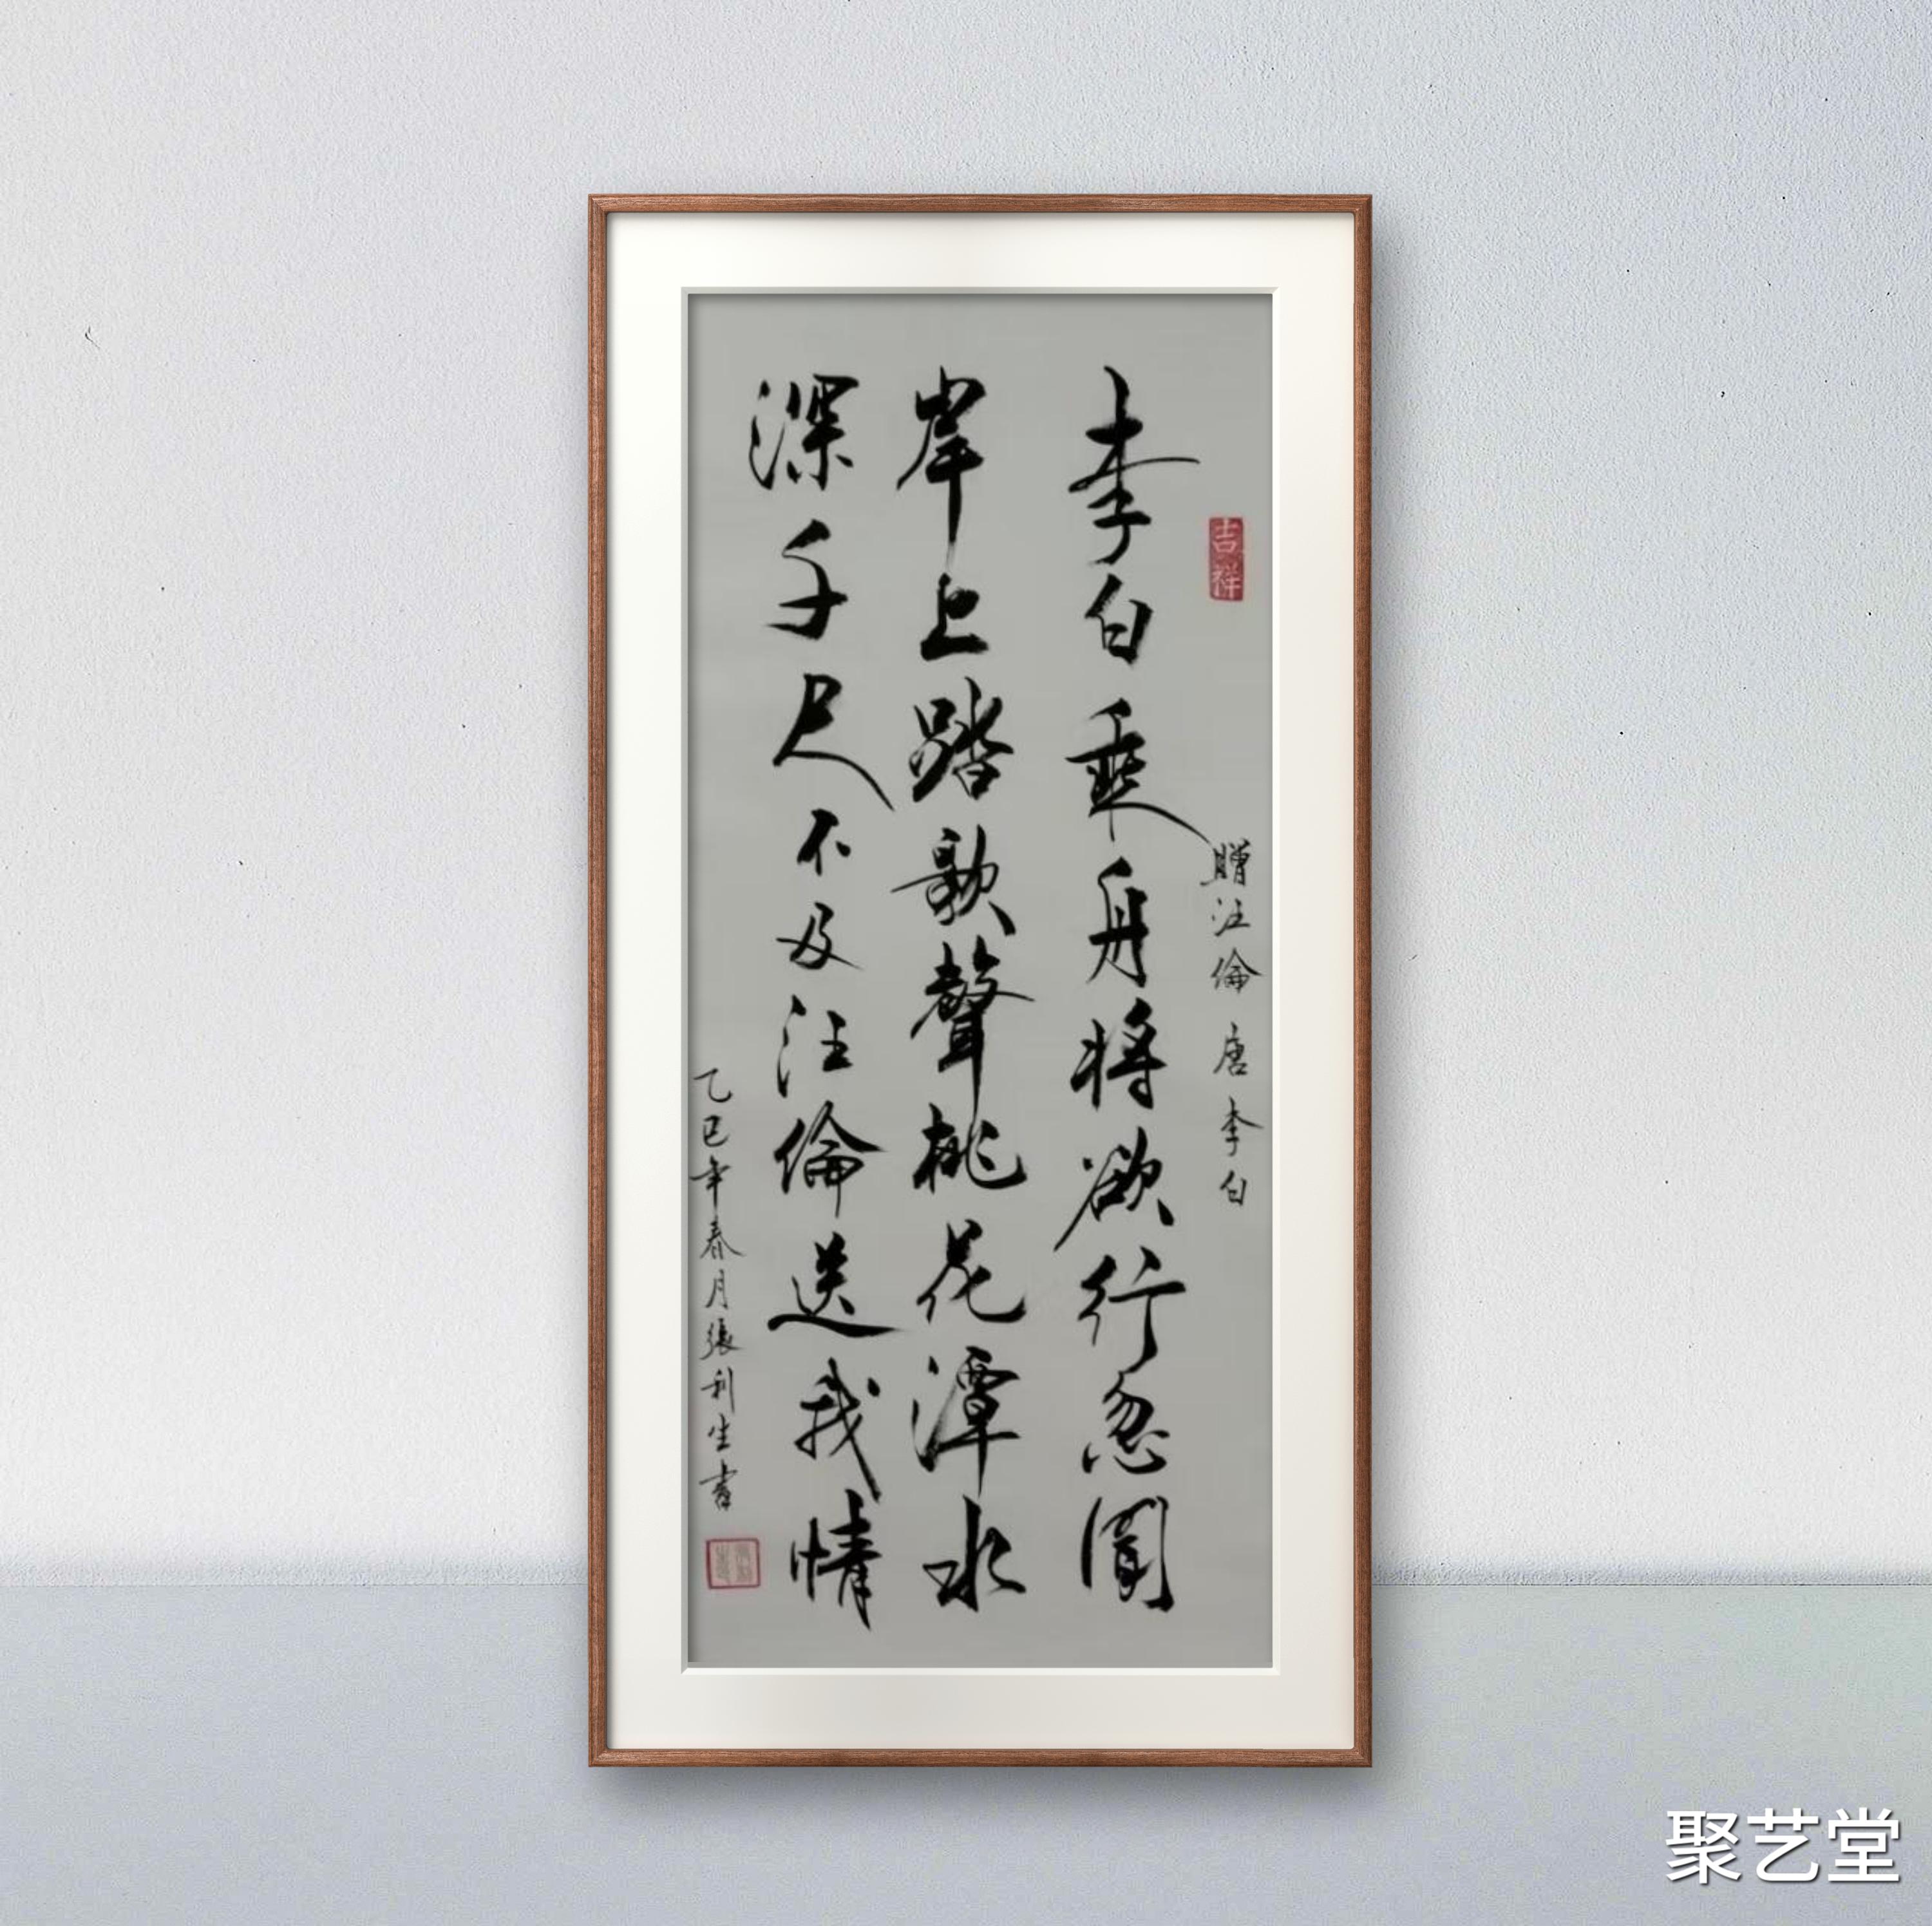 吉祥
贈汪倫 唐 李白
李白乘舟将欲行忽聞
岸上踏歌聲桃花潭水
深千尺不及汪倫送我情
乙巳年春月張利生書
聚艺堂